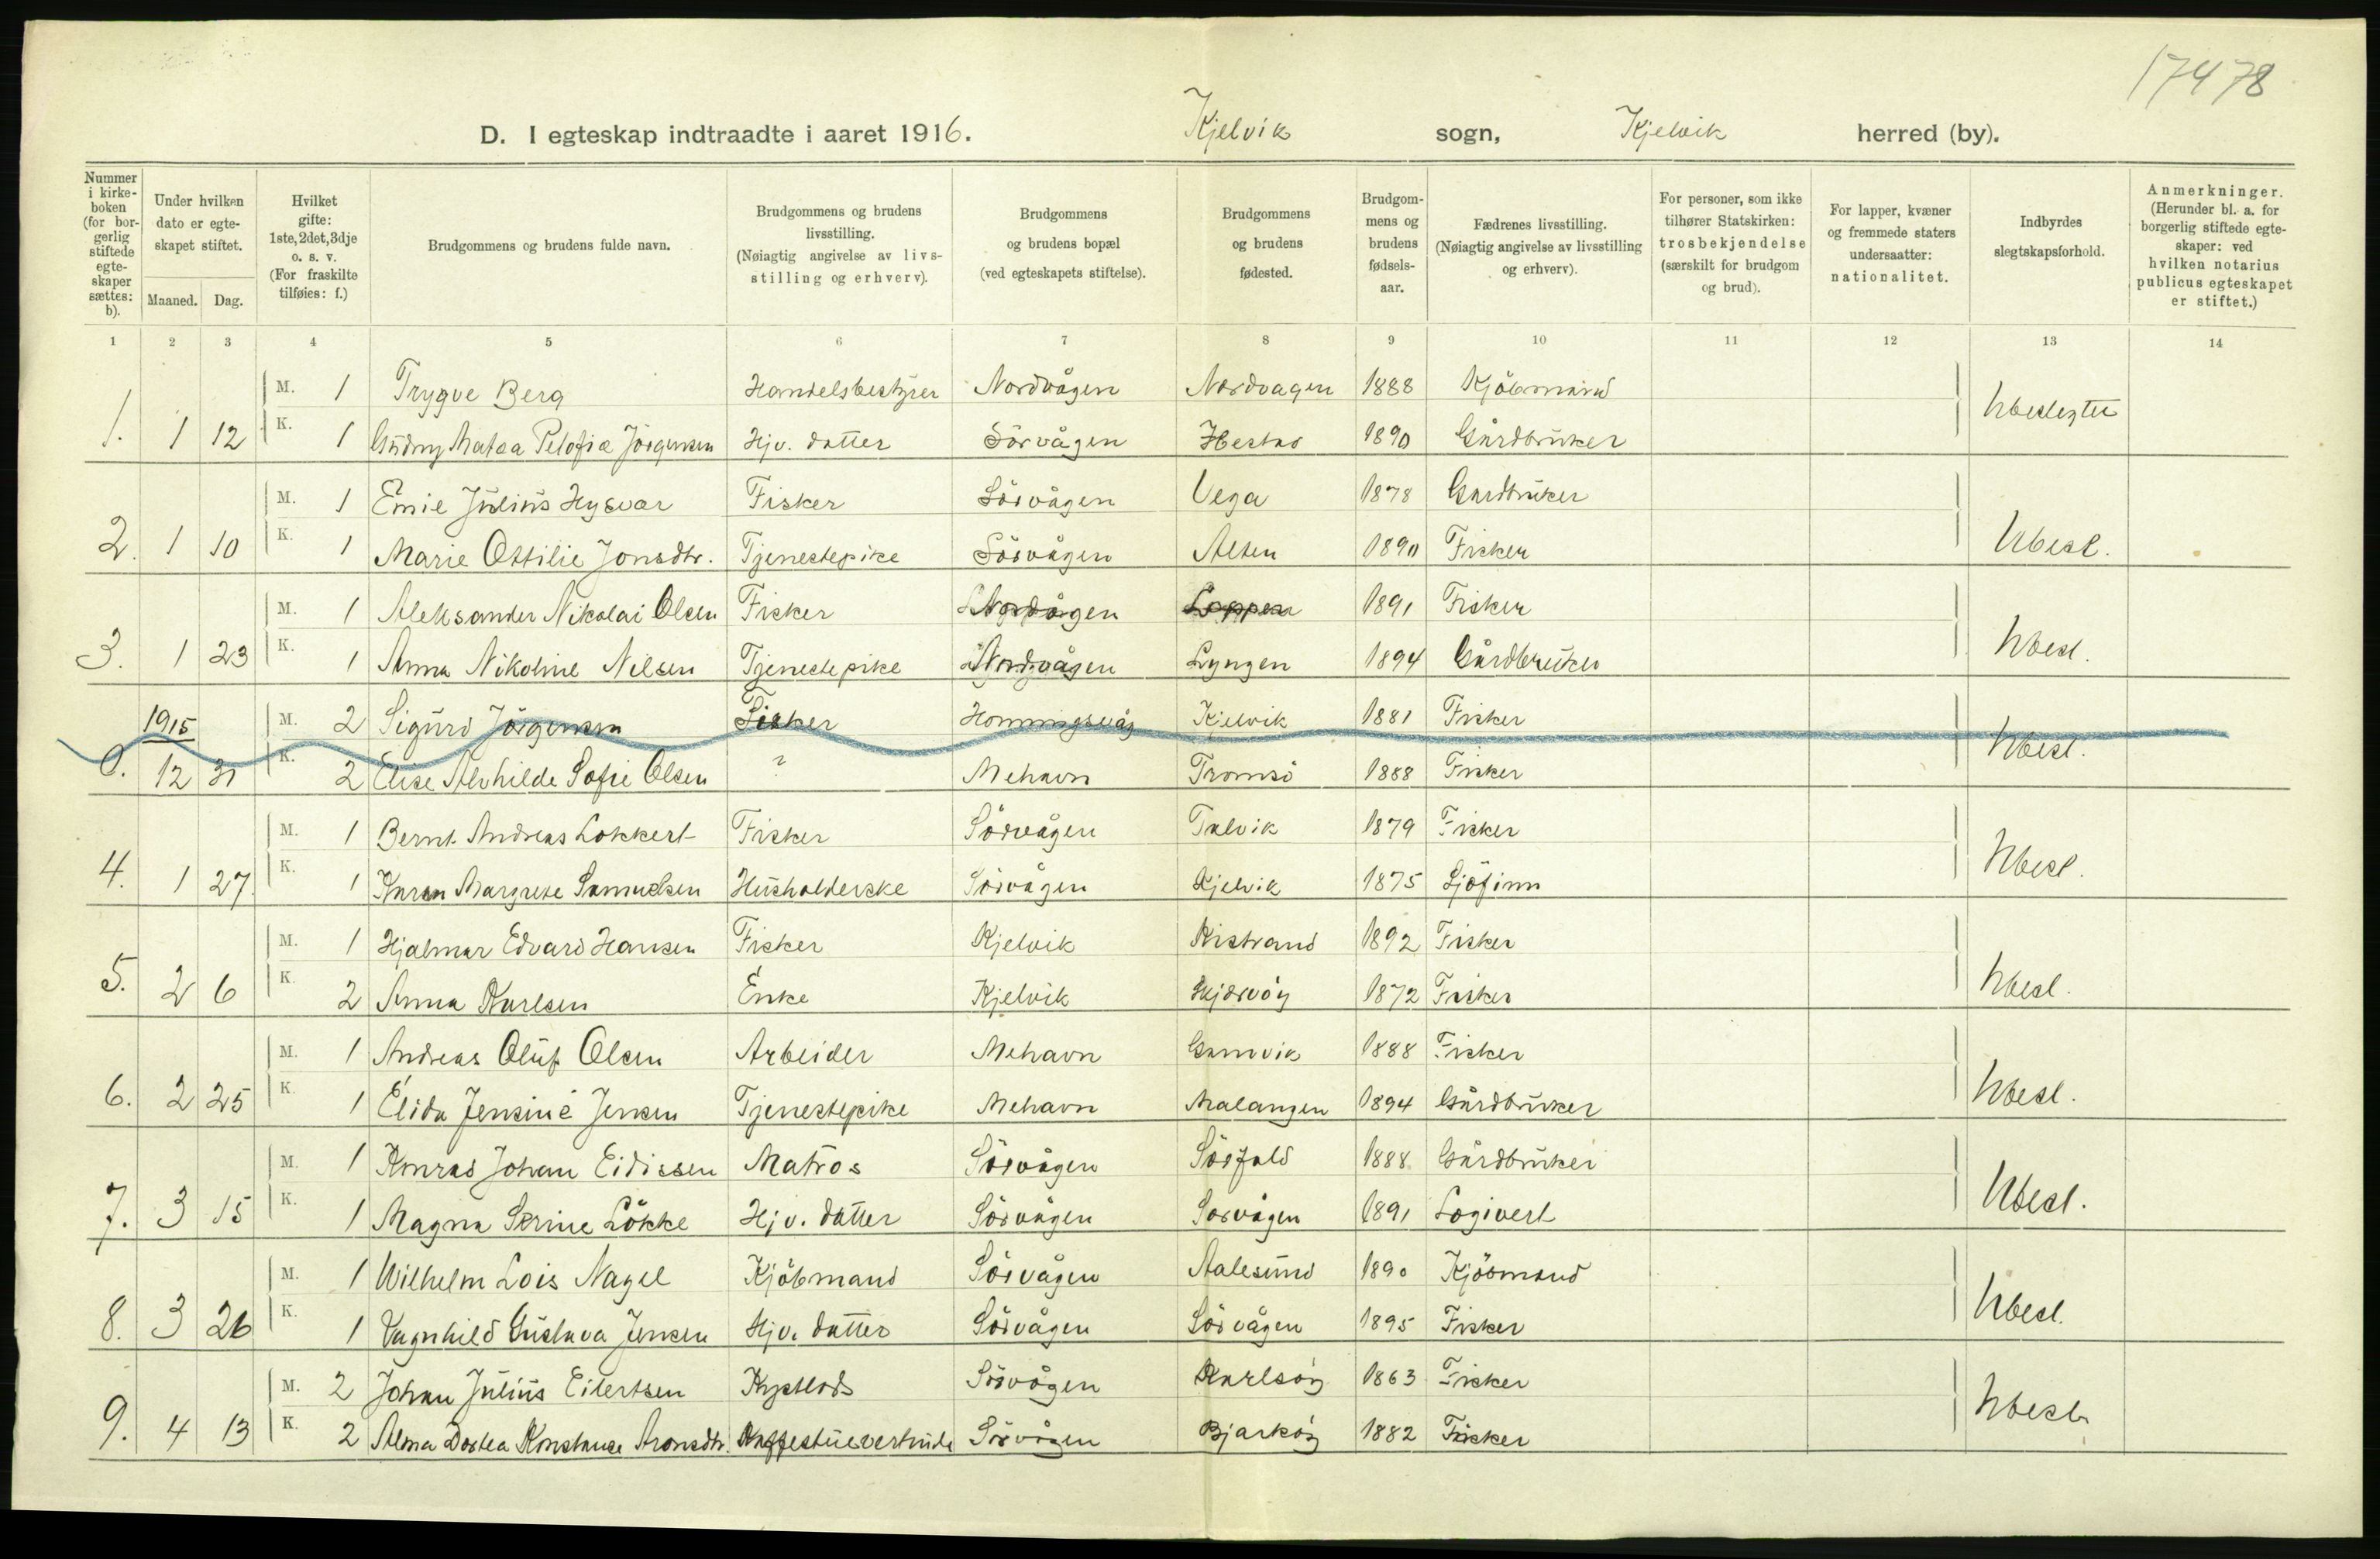 17478
D. I egteskap indtraadte i aaret 1916. Kjelvik sogn, Kjelvik herred (by).
Nummer i kirke-boken (for bor-gerlig stiftede egte-skaper sættes: b). Under hvilken dato er egte-skapet stiftet. Maaned. Dag. Hvilket gifte: 1ste, 2det, 3dje o. s. v. (For fraskilte tilføies: f.) Brudgommens og brudens fulde navn. Brudgommens og brudens livsstilling. (Nøiagtig angivelse av livs-stilling og erhverv). Brudgommens og brudens bopæl (ved egteskapets stiftelse). Brudgommens og brudens fødested. Brudgom-mens og brudens fødsels-aar. Fædrenes livsstilling. (Nøiagtig angivelse av livsstilling og erhverv). For personer, som ikke tilhører Statskirken: trosbekjendelse (særskilt for brudgom og brud). For lapper, kvæner og fremmede staters undersaatter: nationalitet. Indbyrdes slegtskapsforhold. Anmerkninger. (Herunder bl. a. for borgerlig stiftede egte-skaper: ved hvilken notarius publicus egteskapet er stiftet.)
1 2 3 4 5 6 7 8 9 10 11 12 13 14
M. 1 Trygve Berg Handelsbestyrer Nordvågen Nordvagen 1888 Kjöbmand Ubeslegtet
1. 1 12 K. 1 Gudny Jörgensen Hjv. datter Sörvågen 1890 Gårdbruker
M. 1 Emil Julius Hysvær Fisker Sörvågen Vega 1878 Gårdbruker
2. 1 10 K. 1 Marie Ottilie Jonsdtr. Tjenestepike Sörvågen Alten 1890 Fisker Ubesl.
M. 1 Aleksander Nikolai Olsen Fisker Nordvågen Loppen 1891 Fisker
3. 1 23 K. 1 Anna Nikoline Nilsen Tjenestepike Nordvågen Lyngen 1894 Gårdbruker Ubesl.
1915 M. 2 Sigurd Jörgensen Fisker Honningsvåg Kjelvik 1881 Fisker
0. 12 31 K. 2 Elise Alvhilde Sofie Olsen ? Mehavn Tromsö 1888 Fisker Ubesl.
M. 1 Bernt Andreas Lokkert Fisker Sörvågen Talvik 1879 Fisker
4. 1 27. K. 1 Karen Margrete Samuelsen Husholderske Sörvågen Kjelvik 1875 Sjöfinn Ubesl.
M. 1 Hjalmar Edvard Hansen Fisker Kjelvik Kistrand 1892 Fisker
5. 2 6 K. 2 Anna Karlsen Enke Kjelvik Skjervöy 1872 Fisker Ubesl.
M. 1 Andreas Oluf Olsen Arbeider Mehavn Gamvik 1888 Fisker
6. 2 25 K. 1 Elida Jensine Jensen Tjenestepike Mehavn Malangen 1894 Gårdbruker Ubesl.
M. 1 Konrad Johan Eidissen Matros Sörvågen Sörfold 1888 Gårdbruker
7. 3 15 K. 1 Magna Serine Lökke Hjv. datter Sörvågen Sörvågen 1891 Logivert Ubesl.
M. 1 Wilhelm Lois Nagel Kjöbmand Sörvågen Aalesund 1890 Kjöbmand
8. 3 26 K. 1 Gustava Jensen Hjv. datter Sörvågen Sörvågen 1895 Fisker Ubesl.
M. 2 Johan Julius Eilertsen Kystlods Sörvågen Karlsöy 1863 Fisker
9. 4 13 K. 2 Alma Dortea Konstanse Aronsdtr. Kaffestuevertinde Sörvågen Bjarköy 1882 Fisker Ubesl.